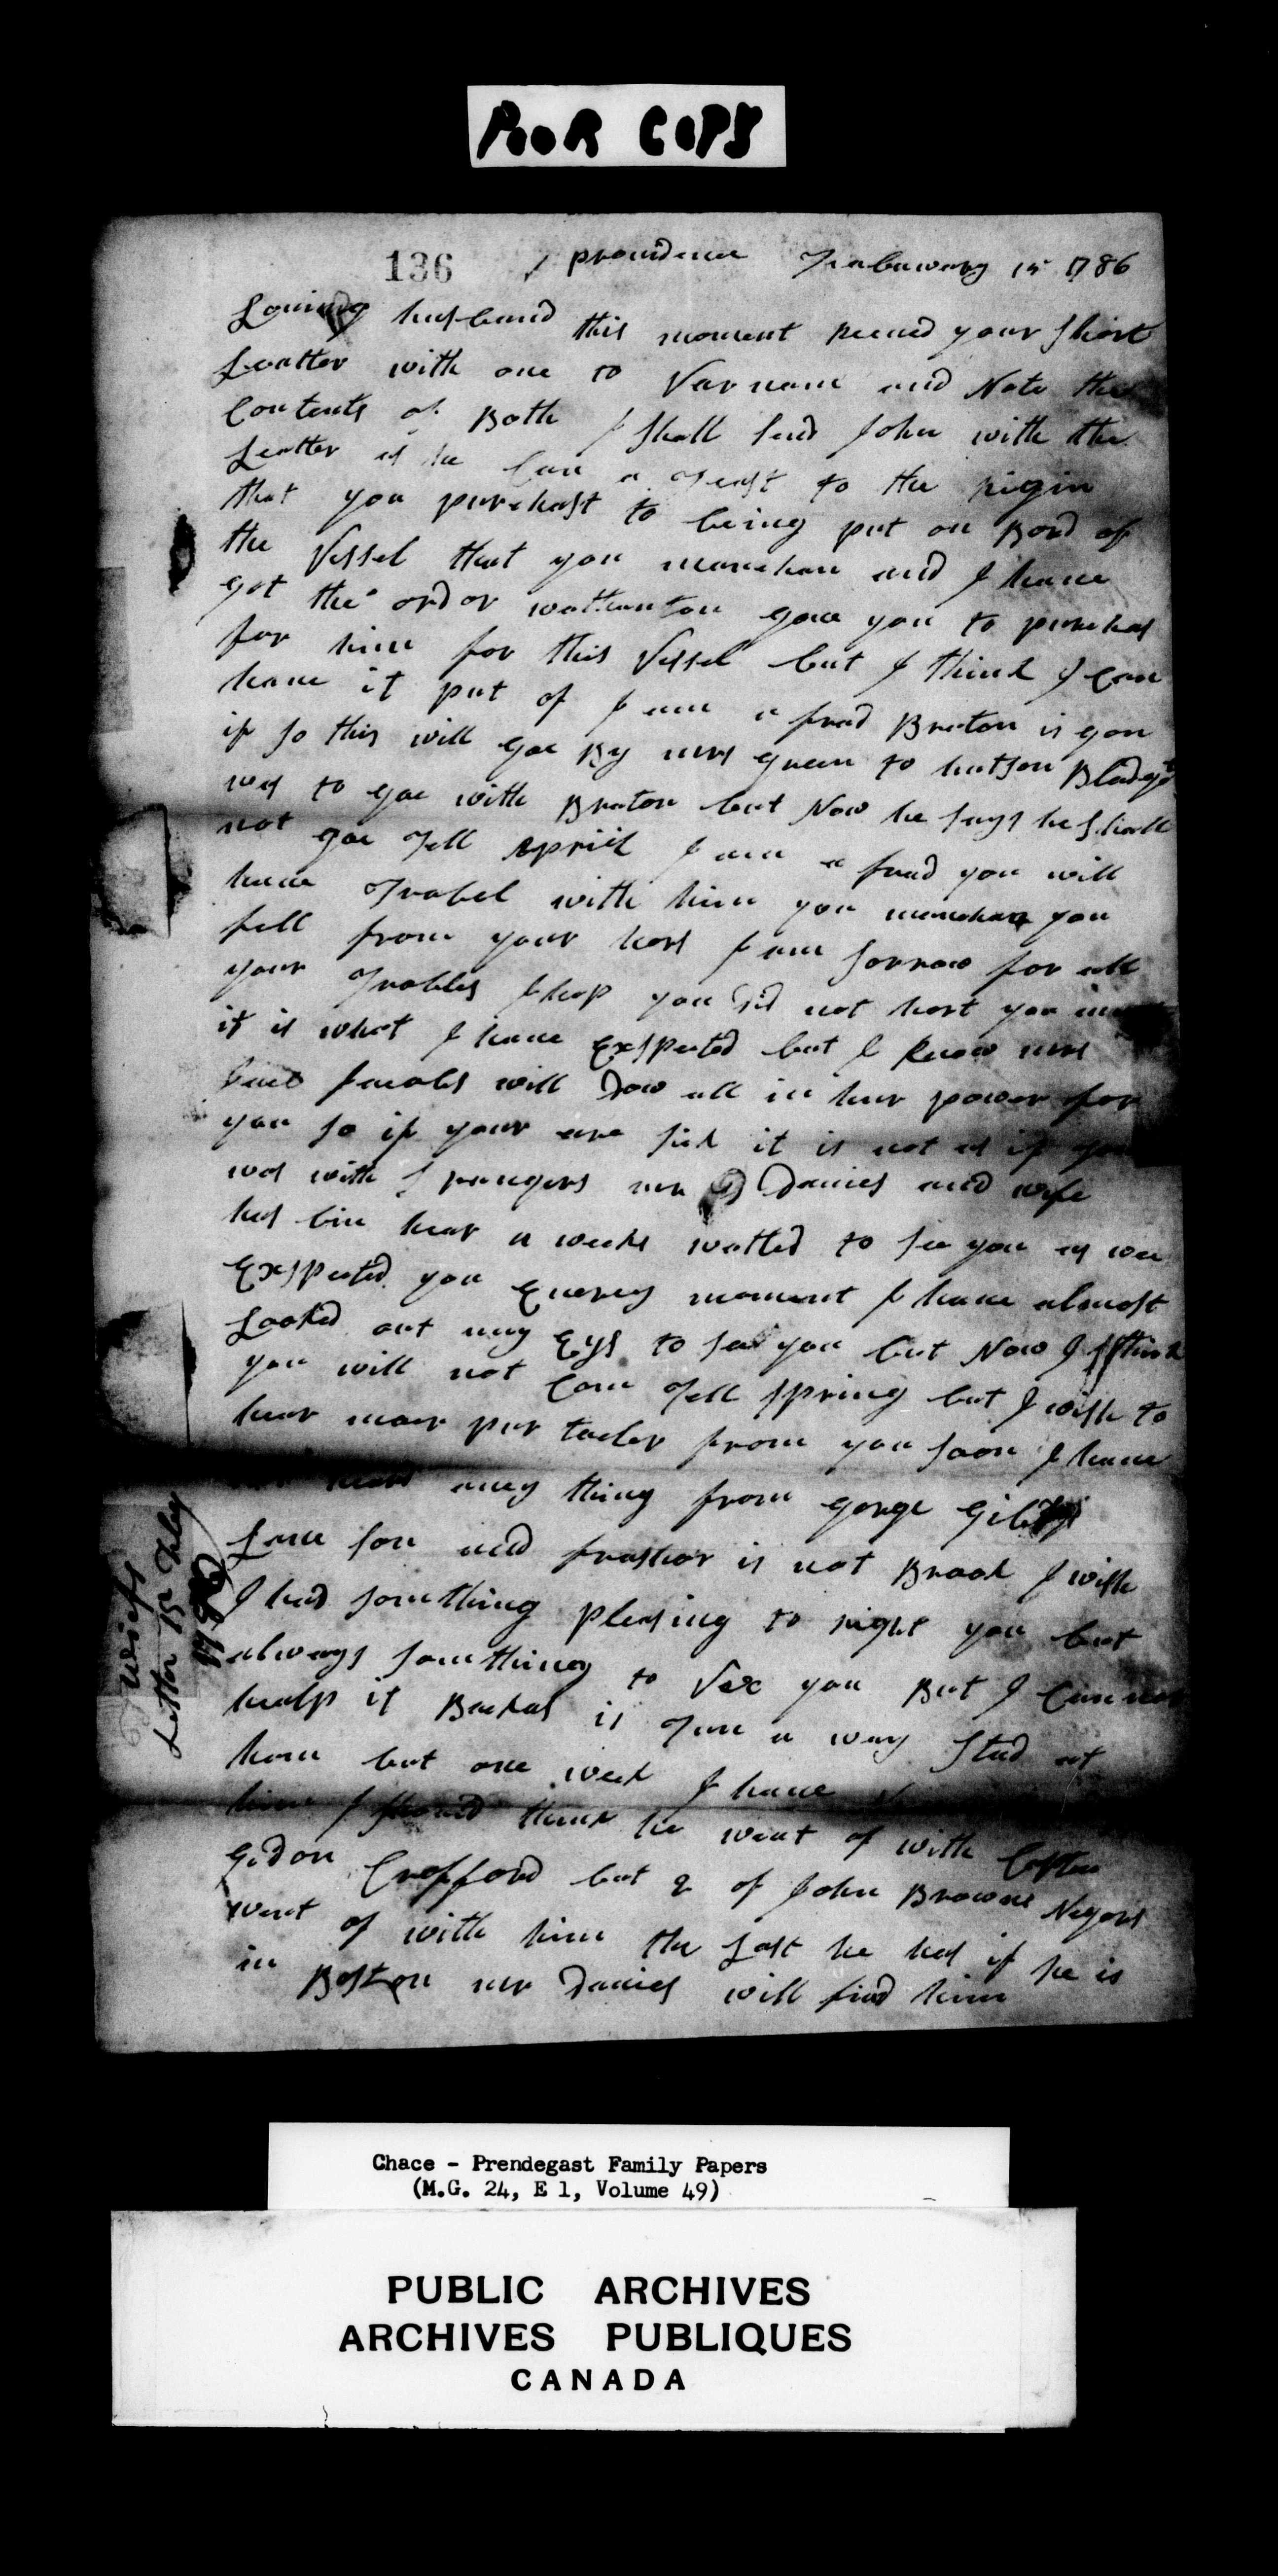 POOR COPY
136
providence Feabuwary 15 1786
Loving husband this moment receued your Short
Leatter with one to Varnam and Note the
Contents of Both I Shall Send John with the
Leatter as he Can a to the rigin
that you purchast to being put on Bord of
the Vessel that you menshan and I haue
got the ordor gaue you to purchas
for him for this Vessel but I think I Can
haue it put of I am a frad Braton is gon
if so this will goe By mrs green to hutson
was to goe with Braton but Now he says he Shall
not goe Tell April I am a frad you will
haue Trabel with him you menshan you
fell from your hors I am Sorrow for all
your Trobles I hop you did not hort you
it is what I haue Exspected but I know mrs
Jacobs will Dow all in hur power for
you so if your are sick it is not as if you
was with Strangers mr Daues and wife
has bin hear a weeks watted to see you as wee
Exspected you Euerey moment I haue almost
Looked out mey Eys to see you but Now I think
you will not Com Tell Spring but I wish to
hear moar pur tacler from you Soon I haue
heard aney thing from gorge
son and is not I wish
I had Somthing plesing to right you but
always Somthing to Vex you But I Can not
healp it Backas is a way Stad at
hom but one week I haue
him I think he went of with Capten
Gidon Crofford but 2 of John Browns Negors
went of with him the Last he had if he is
in Boston mr Daues will find him
Wiefs
Letter 15 Feby
1786
Chace - Prendegast Family Papers
(M.G. 24, E 1, Volume 49)
PUBLIC ARCHIVES
ARCHIVES PUBLIQUES
CANADA